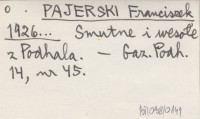 o. PAJERSKI Franciszek
1926... Smutne i wesołe
z Podhala. — Gaz. Podh.
14, nr 45.